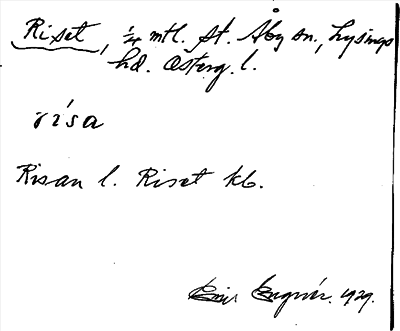 Riset, 1/4 mtl. St. Åby sn., Lysings
hd. Österg. l.
rísa
Risan l. Riset kb.
1929.